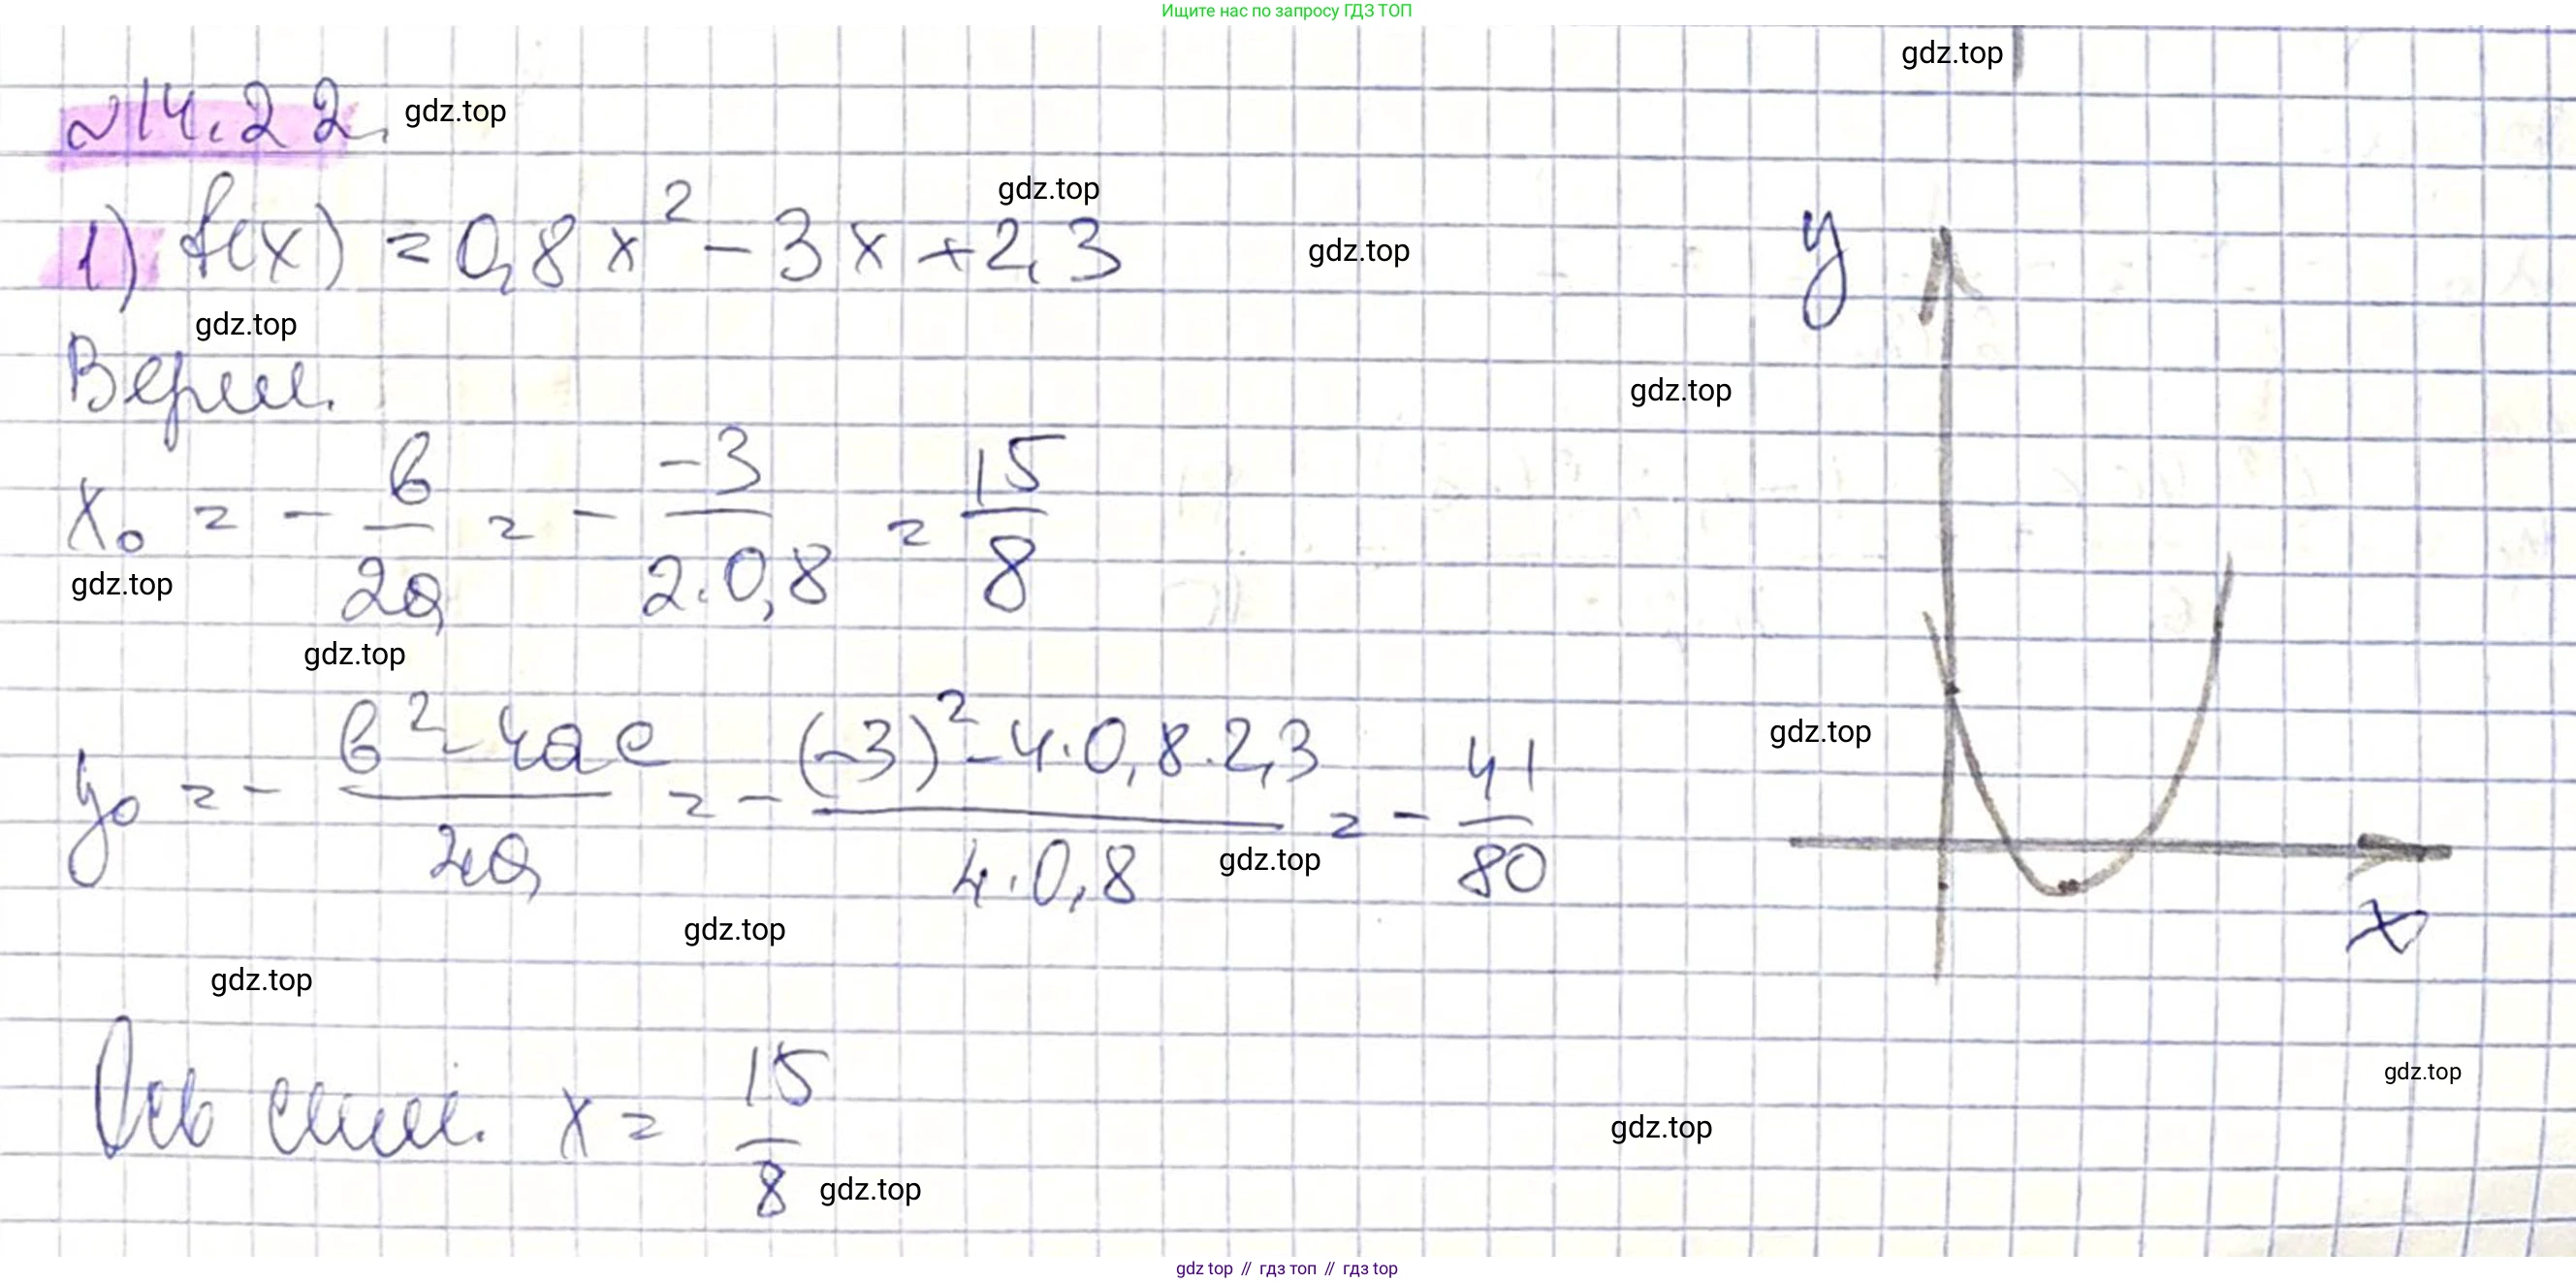 Ищите нас по запросу ГДЗ ТОП
gdz.top
№14.22.
gdz.top
gdz.top
1) f(x) = 0,8x² - 3x + 2,3
gdz.top
y
gdz.top
Верш.
gdz.top
x₀ = - в/2a = - -3/2·0,8 = 15/8
gdz.top
gdz.top
y₀ = - в²-4ac/4a = - (-3)²-4·0,8·2,3/4·0,8 = - 41/80
gdz.top
gdz.top
gdz.top
x
gdz.top
Ось сим. x = 15/8
gdz.top
gdz.top
gdz.top
gdz top // гдз топ // гдз top